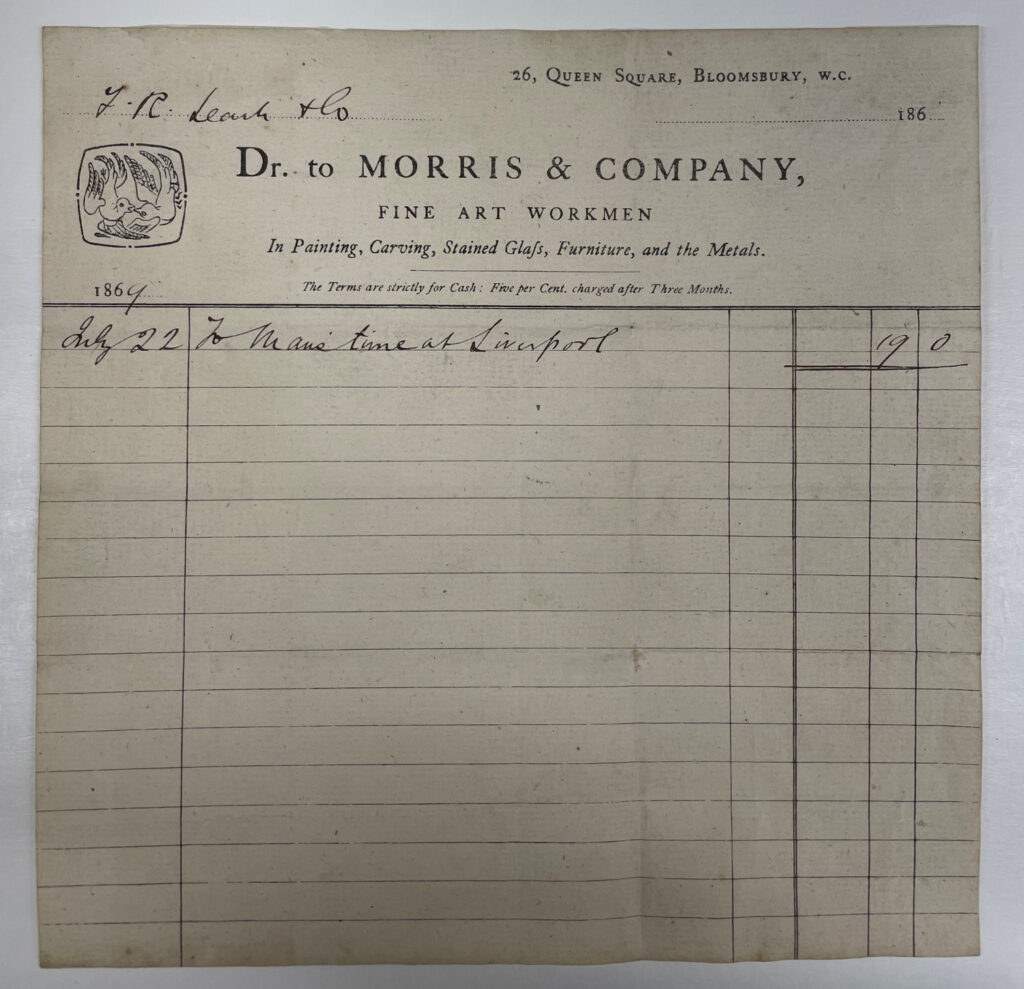 26, Queen Square, Bloomsbury, W.C.
F. R. Leach & Co
186
Dr. to MORRIS & COMPANY,
FINE ART WORKMEN
In Painting, Carving, Stained Glaſs, Furniture, and the Metals.
1869
The Terms are strictly for Cash: Five per Cent. charged after Three Months.
July 22 To Mans time at Liverpool 19 0